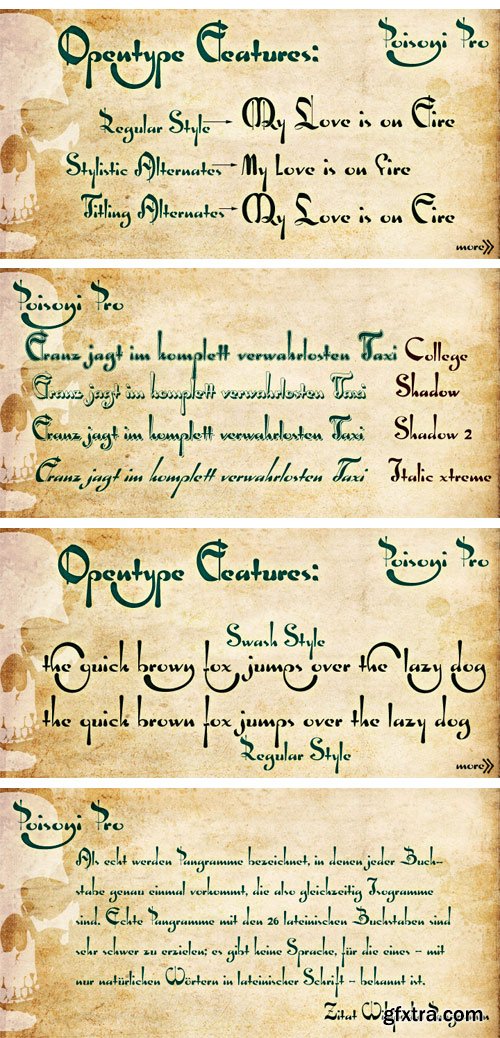 Opentype Features:
Poisoni Pro
Regular Style
My Love is on Fire
Stylistic Alternates
My Love is on Fire
Titling Alternates
My Love is on Fire
more
Poisoni Pro
Franz jagt im komplett verwahrlosten Taxi
College
Franz jagt im komplett verwahrlosten Taxi
Shadow
Franz jagt im komplett verwahrlosten Taxi
Shadow 2
Franz jagt im komplett verwahrlosten Taxi
Italic xtreme
Opentype Features:
Poisoni Pro
Swash Style
the quick brown fox jumps over the lazy dog
the quick brown fox jumps over the lazy dog
Regular Style
more
Poisoni Pro
Als echt werden Pangramme bezeichnet, in denen jeder Buch-
stabe genau einmal vorkommt, die also gleichzeitig Isogramme
sind. Echte Pangramme mit den 26 lateinischen Buchstaben sind
sehr schwer zu erzielen; es gibt keine Sprache, für die eines - mit
nur natürlichen Wörtern in lateinischer Schrift - bekannt ist.
Zitat Wikipedia
gfxtra.com